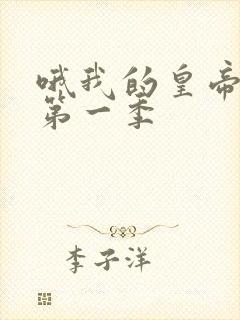 哦我的皇帝
第一季
李子洋